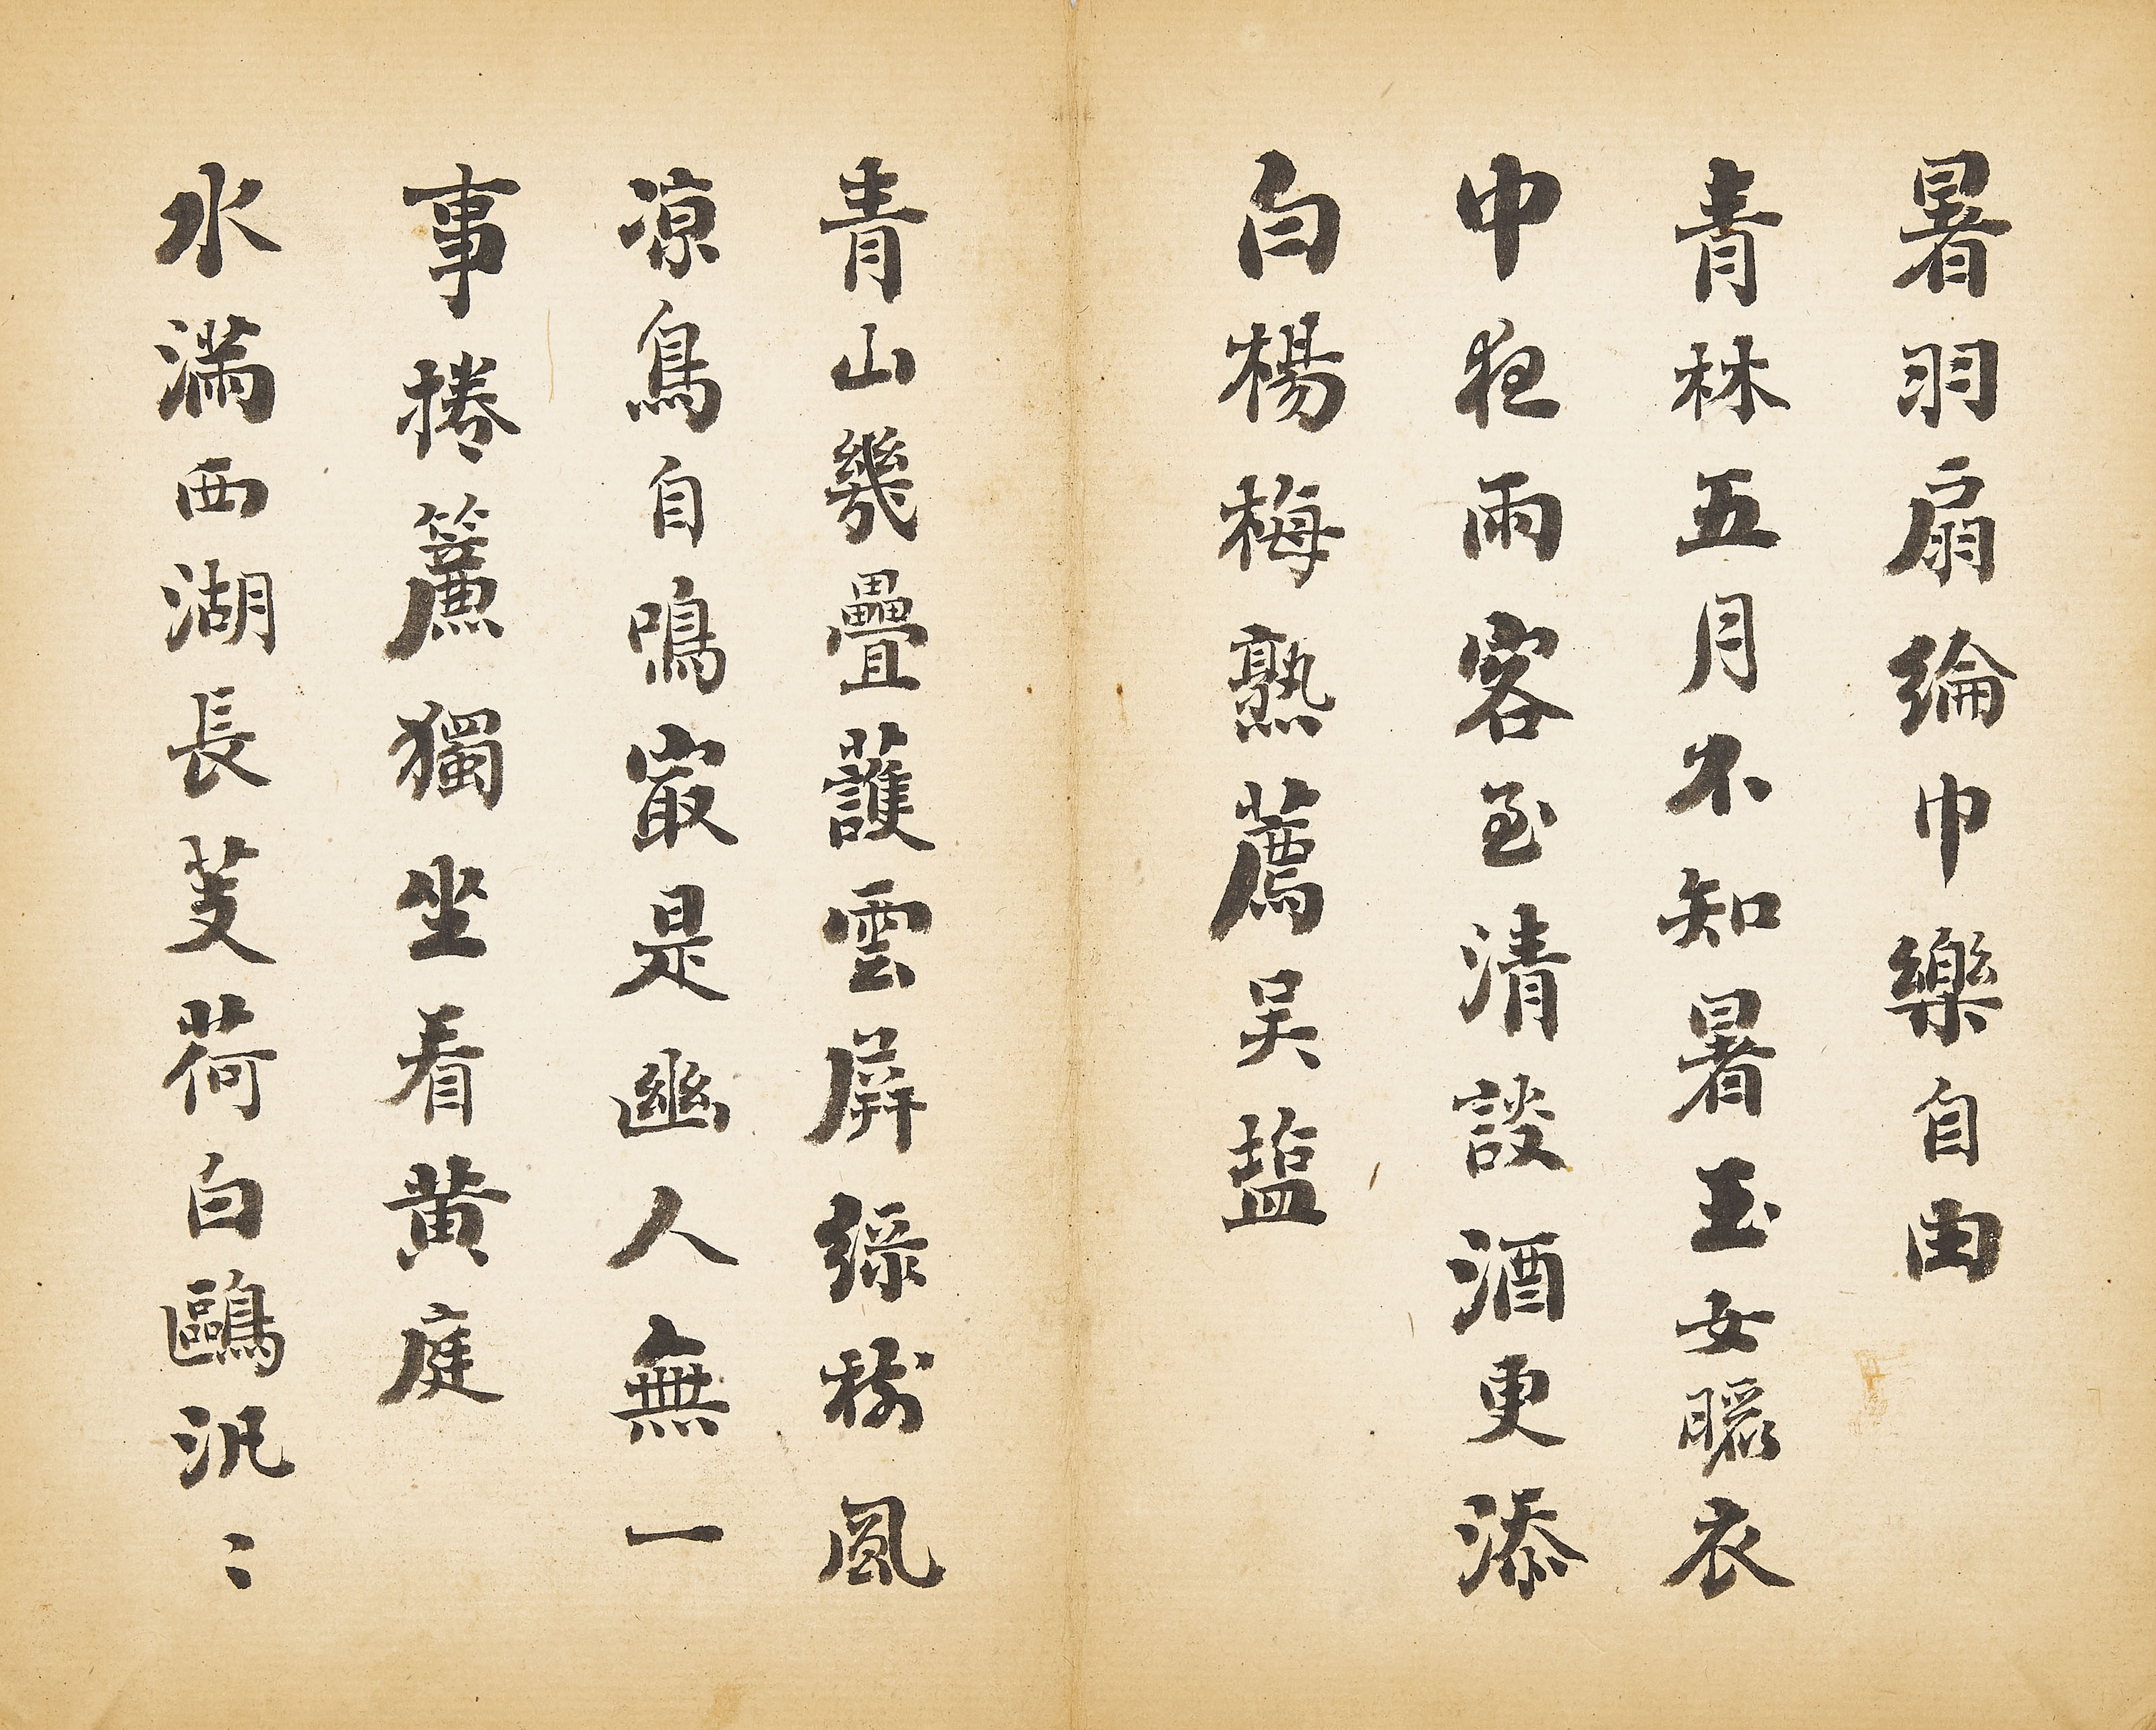 暑羽扇綸巾樂自由
青林五月不知暑玉女曬衣
中夜雨客至清談酒更添
白楊梅熟薦吳塩
青山幾疊護雲屏綠樹風
凉鳥自鳴㝡是幽人無一
事捲簾獨坐看黄庭
水滿西湖長芰荷白鷗汎〻